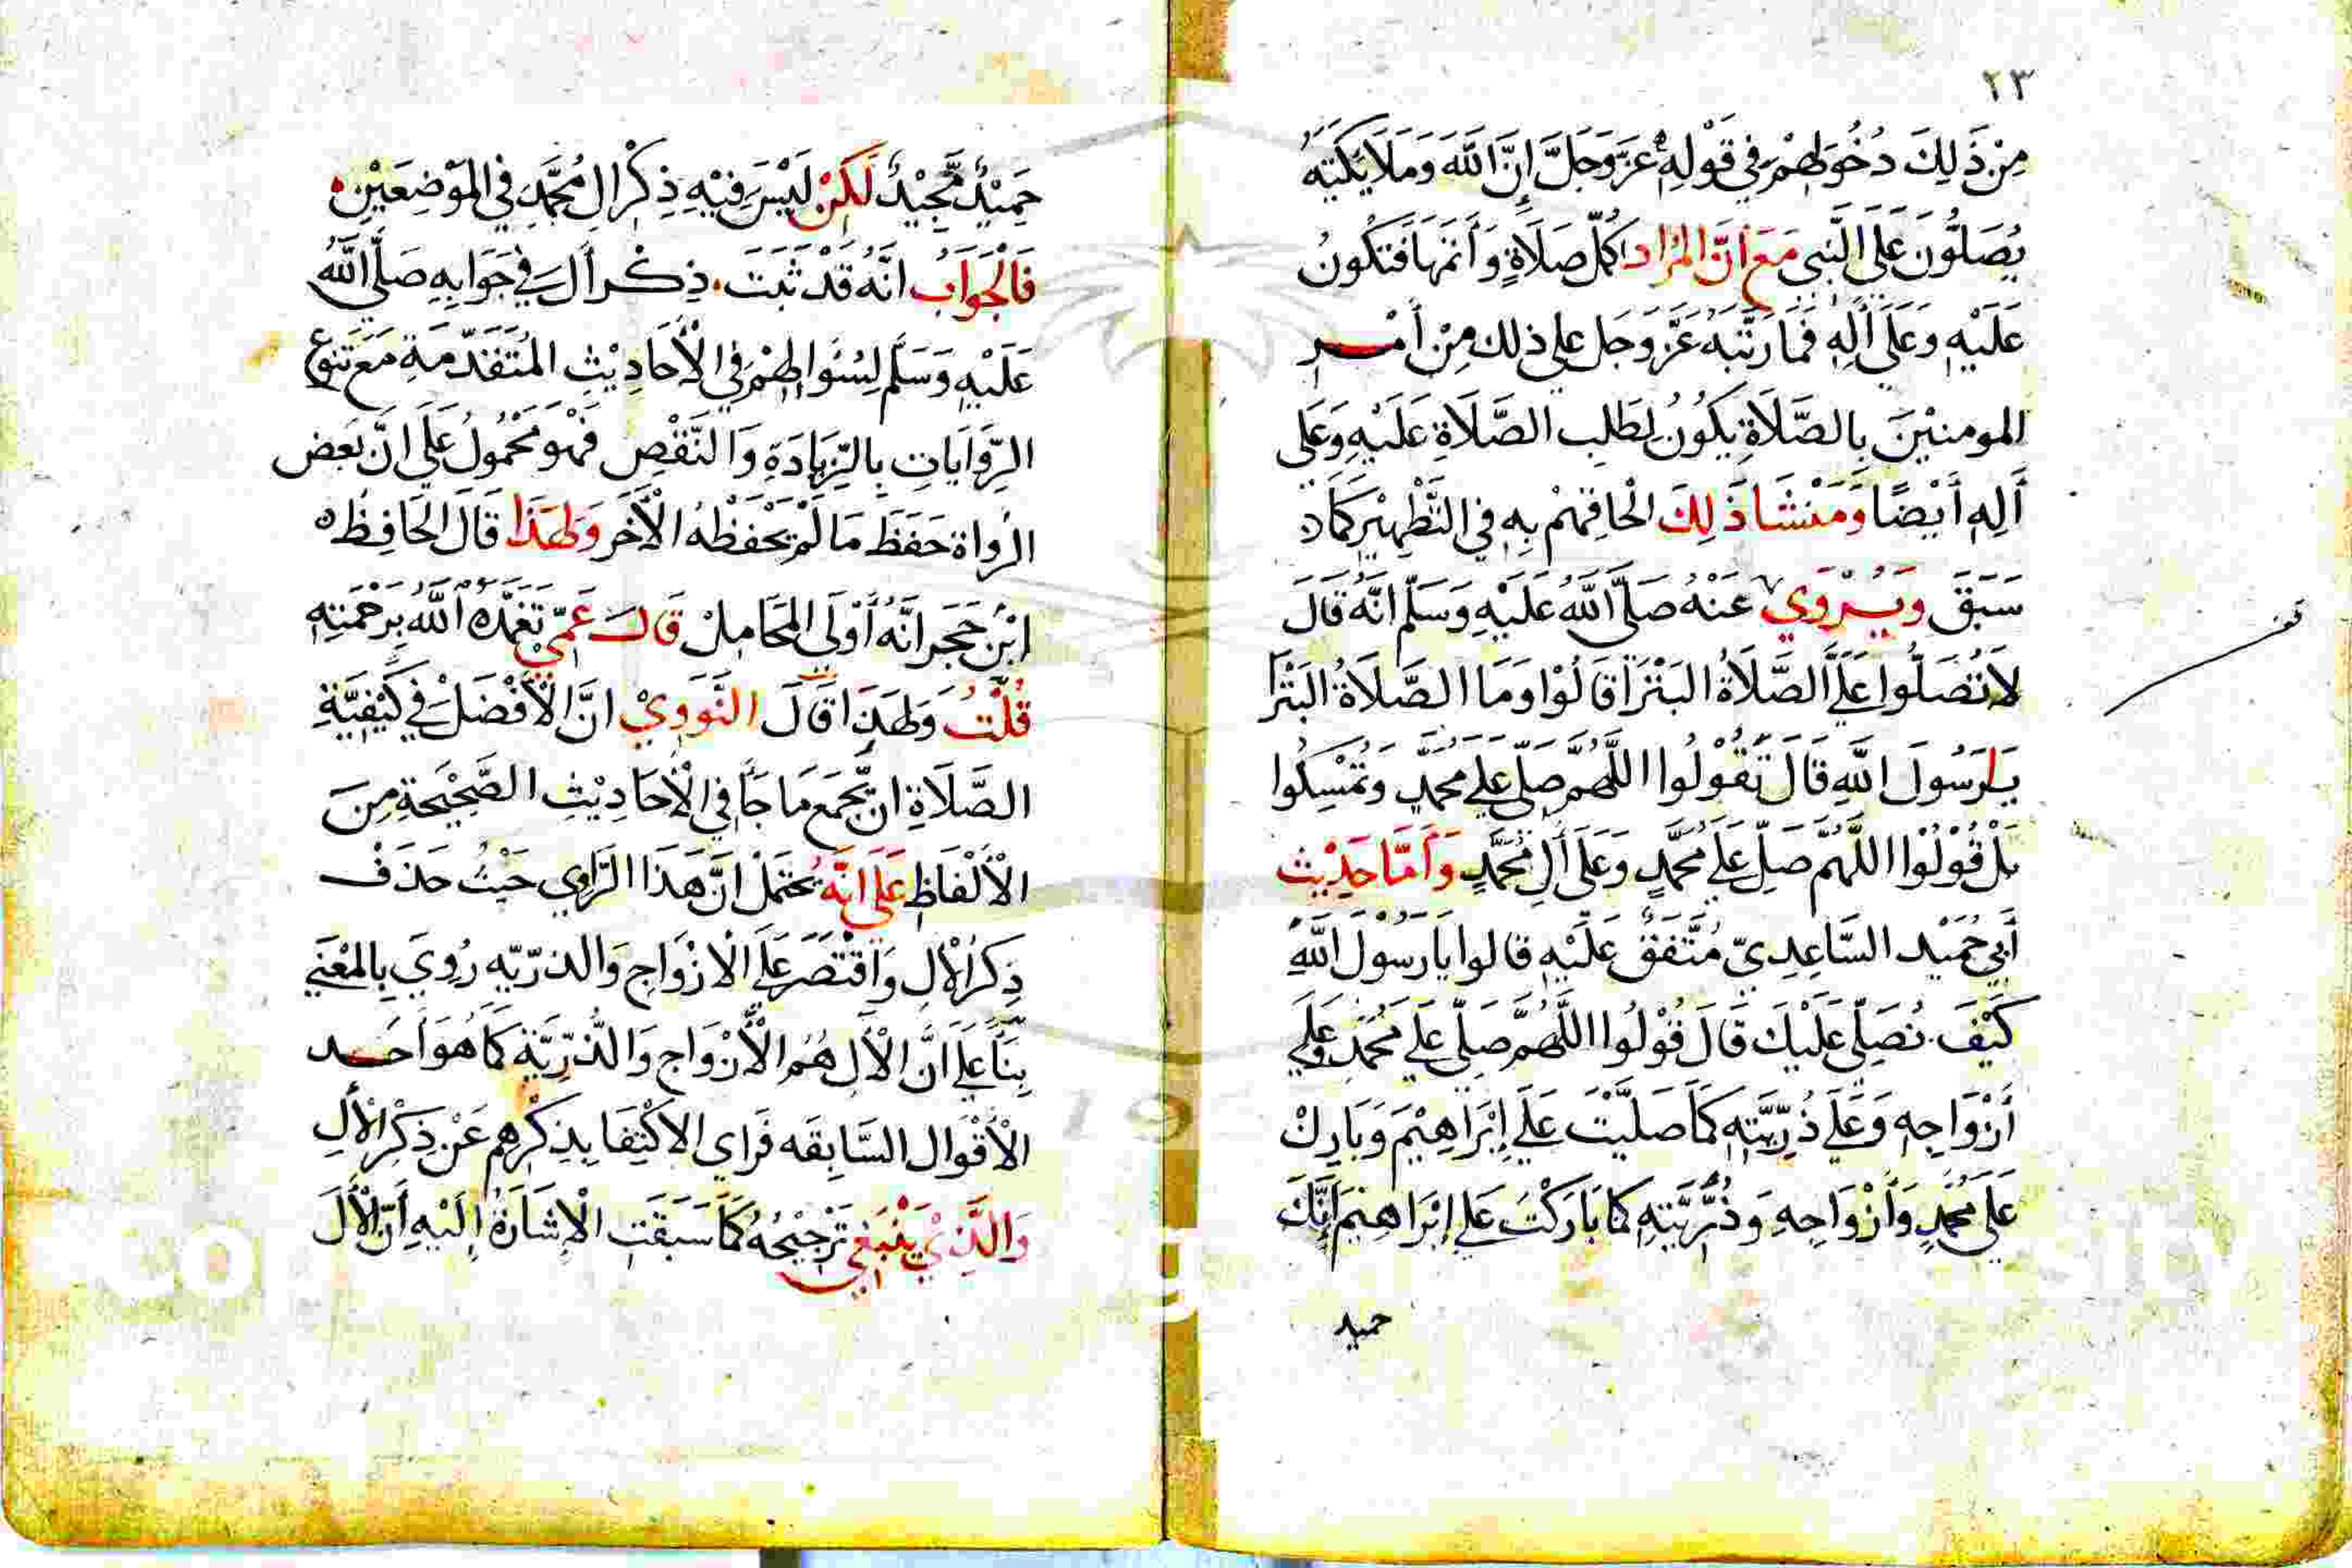 ٢٣
مِنْ ذَلِكَ دُخُولهُمْ فِي قَوْلِهِ عَزَّ وَجَلَّ إِنَّ اللَّهَ وَمَلَائِكَتِهُ
يُصَلُّونَ عَلَى النَّبِي مَعَ أَنَّ المُرَاد اَكْمَل صَلَاةٍ وَأَتَمّهَا فَتَكُونُ
عَلَيْهِ وَعَلَى أَلِهِ فَمَا رَتَّبَهُ عَزَّ وَجَل علي ذلك مِنْ أَمْرِ
المومنيْنَ بِالصَّلَاةِ يَكُونُ لِطَلب الصَّلَاةِ عَلَيْهِ وَعَلى
أَلِهِ أَيْضًا وَمَنْشَا ذَلِكَ الْحَاقهُمْ بِهِ فِي التَّطْهِيْرِ كَمَا
سَبَقَ وَيُرْوَي عَنْهُ صَلَّى اللَّهُ عَلَيْهِ وَسَلَّم انَّهُ قَالَ
لاَ تُصَلُّوا عَلَيَّ الصَّلَاةُ البَتْرَا قَالُوْا وَمَا الصَّلَاةُ البَتْرَا
يَا رَسُولَ اللَّهِ قَالَ تَقُولُوا اللَّهُمَّ صَلّ علي محمّدٍ وَتُمْسِكُوا
بَلْ قُوْلُوْا اللَّهُمَّ صَلِّ عَلَي مُحَمَّدٍ وَعَلَى أَلِ مُحَمَّدٍ وَأَمَّا حَدِيْث
أَبِي حُمَيْد السَّاعِدِيّ مُتَّفَقٌ عَلَيْهِ قالوا يَا رَسُوْلَ اللَّهِ
كَيْفَ نُصَلِّي عَلَيْكَ قَالَ قُوْلُوا اللَّهُمَّ صَلِّي عَلَي مُحَمَّدٍ وَعَلَي
أَزْوَاجِهِ وَعَلَي ذُرِّيَّتِهِ كَمَا صَلَيَّتَ عَلَي إِبْرَاهِيْمَ وَبَارِكْ
عَلَى مُحَمَّدٍ وَأَزْوَاجِهِ وَذُرِّيَّتِهِ كَمَا بَارَكْتَ عَلَي إِبْرَاهِيْمَ إِنَّكَ
حميد
حَمِيْدٌ مَّجِيْدٌ لَكِنْ لَيْسَ فِيْهِ ذِكْرُ الِ مُحَمَّدٍ فِي المَوْضِعَيْنِ
فَالْجَوَابُ انَّهُ قَدْ ثَبَتَ ذِكْر أَل فِي جَوَابِهِ صَلَّى اللَّهُ
عَلَيْهِ وَسَلَّم لِسُئَوالِهِمْ فِي الْأَحَادِيْثِ المُتَقَدّمَةِ مَعَ تَنَوع
الرِّوَايَاتِ بِالزِّيَادَةِ وَالنَّقْصِ فَهُوَ مَحْمُولٌ عَلَي انَّ بَعض
الرُواة حَفَظَ مَا لَمْ يَحْفَظْهُ الْأَخَر وَلِهَذَا قَالَ الحَافِظ
ابْن حَجَر انَّهُ أَوْلَى المَحَامِلْ قَالَ عَمِّيْ تَغَمَّدَهُ اللَّهُ بِرَحْمَتِهِ
قُلْتُ وَلِهَذَا قَالَ النَّوَوِيْ انَّ الأَفْضَلَ فِي كَيْفِيَّةِ
الصَّلَاةِ ان يَّجْمَع مَا جَاَ فِي الْأَحَادِيْثِ الصَّحِيْحَةِ مِنَ
الأَلْفَاظِ عَلَى انَّهُ يَحْتَمَلْ انَّ هَذَا الرَّاوِي حَيْثُ حَذَفْ
ذِكْرَ الْأَلِ وَاقْتَصَرَ عَلَي الازْوَاجِ وَالذرّيّه رُوِيَ بِالمَعْنَي
بِنَاً عَلَي انَّ الْأَل هُمُ الْأَزْوَاج وَالذُّرِّيَّةِ كَمَا هُوَ أَحَد
الْأَقْوَال السَّابِقَه فَرَاي الاكْتِفَا بِذِكْرِهم عَنْ ذِكْرِ الأَلِ
وَالَّذِيْ يَنْبَغِي تَرْجِيْحُهُ كَمَا سَبَقَتِ الْإِشَارَةُ إِلَيْهِ أَنَّ الْأَلَ